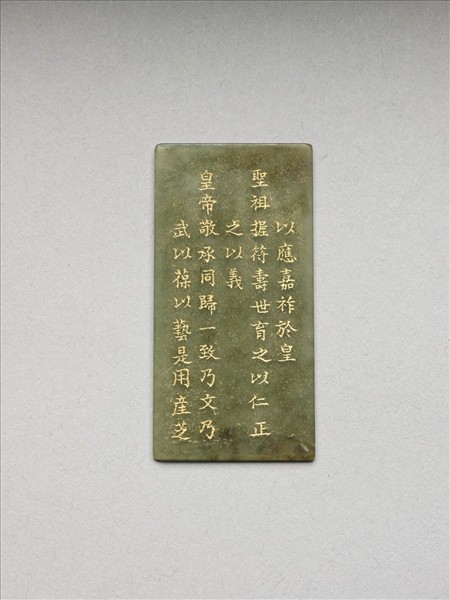 以應嘉祚於皇
聖祖握符壽世育之以仁正
之以義
皇帝敬承同歸一致乃文乃
武以葆以藝是用產芝